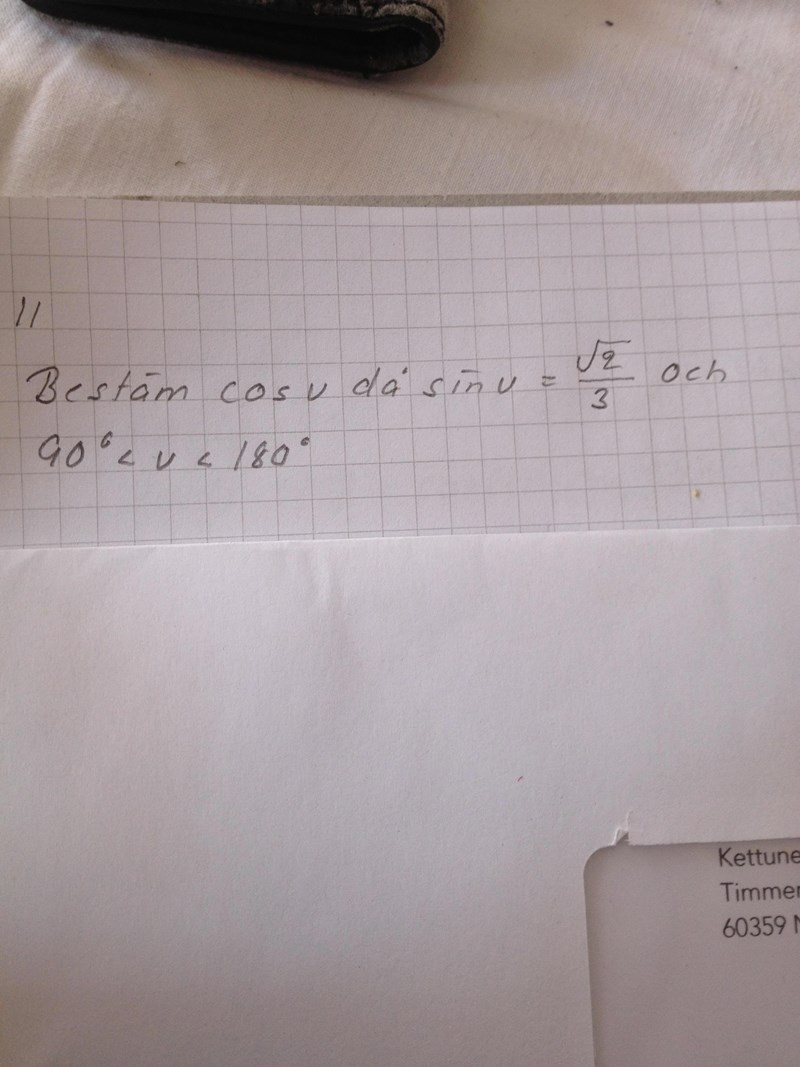 11
Bestäm cos v då sin v = √2/3 och
90° < v < 180°
Kettune
Timmer
60359 N